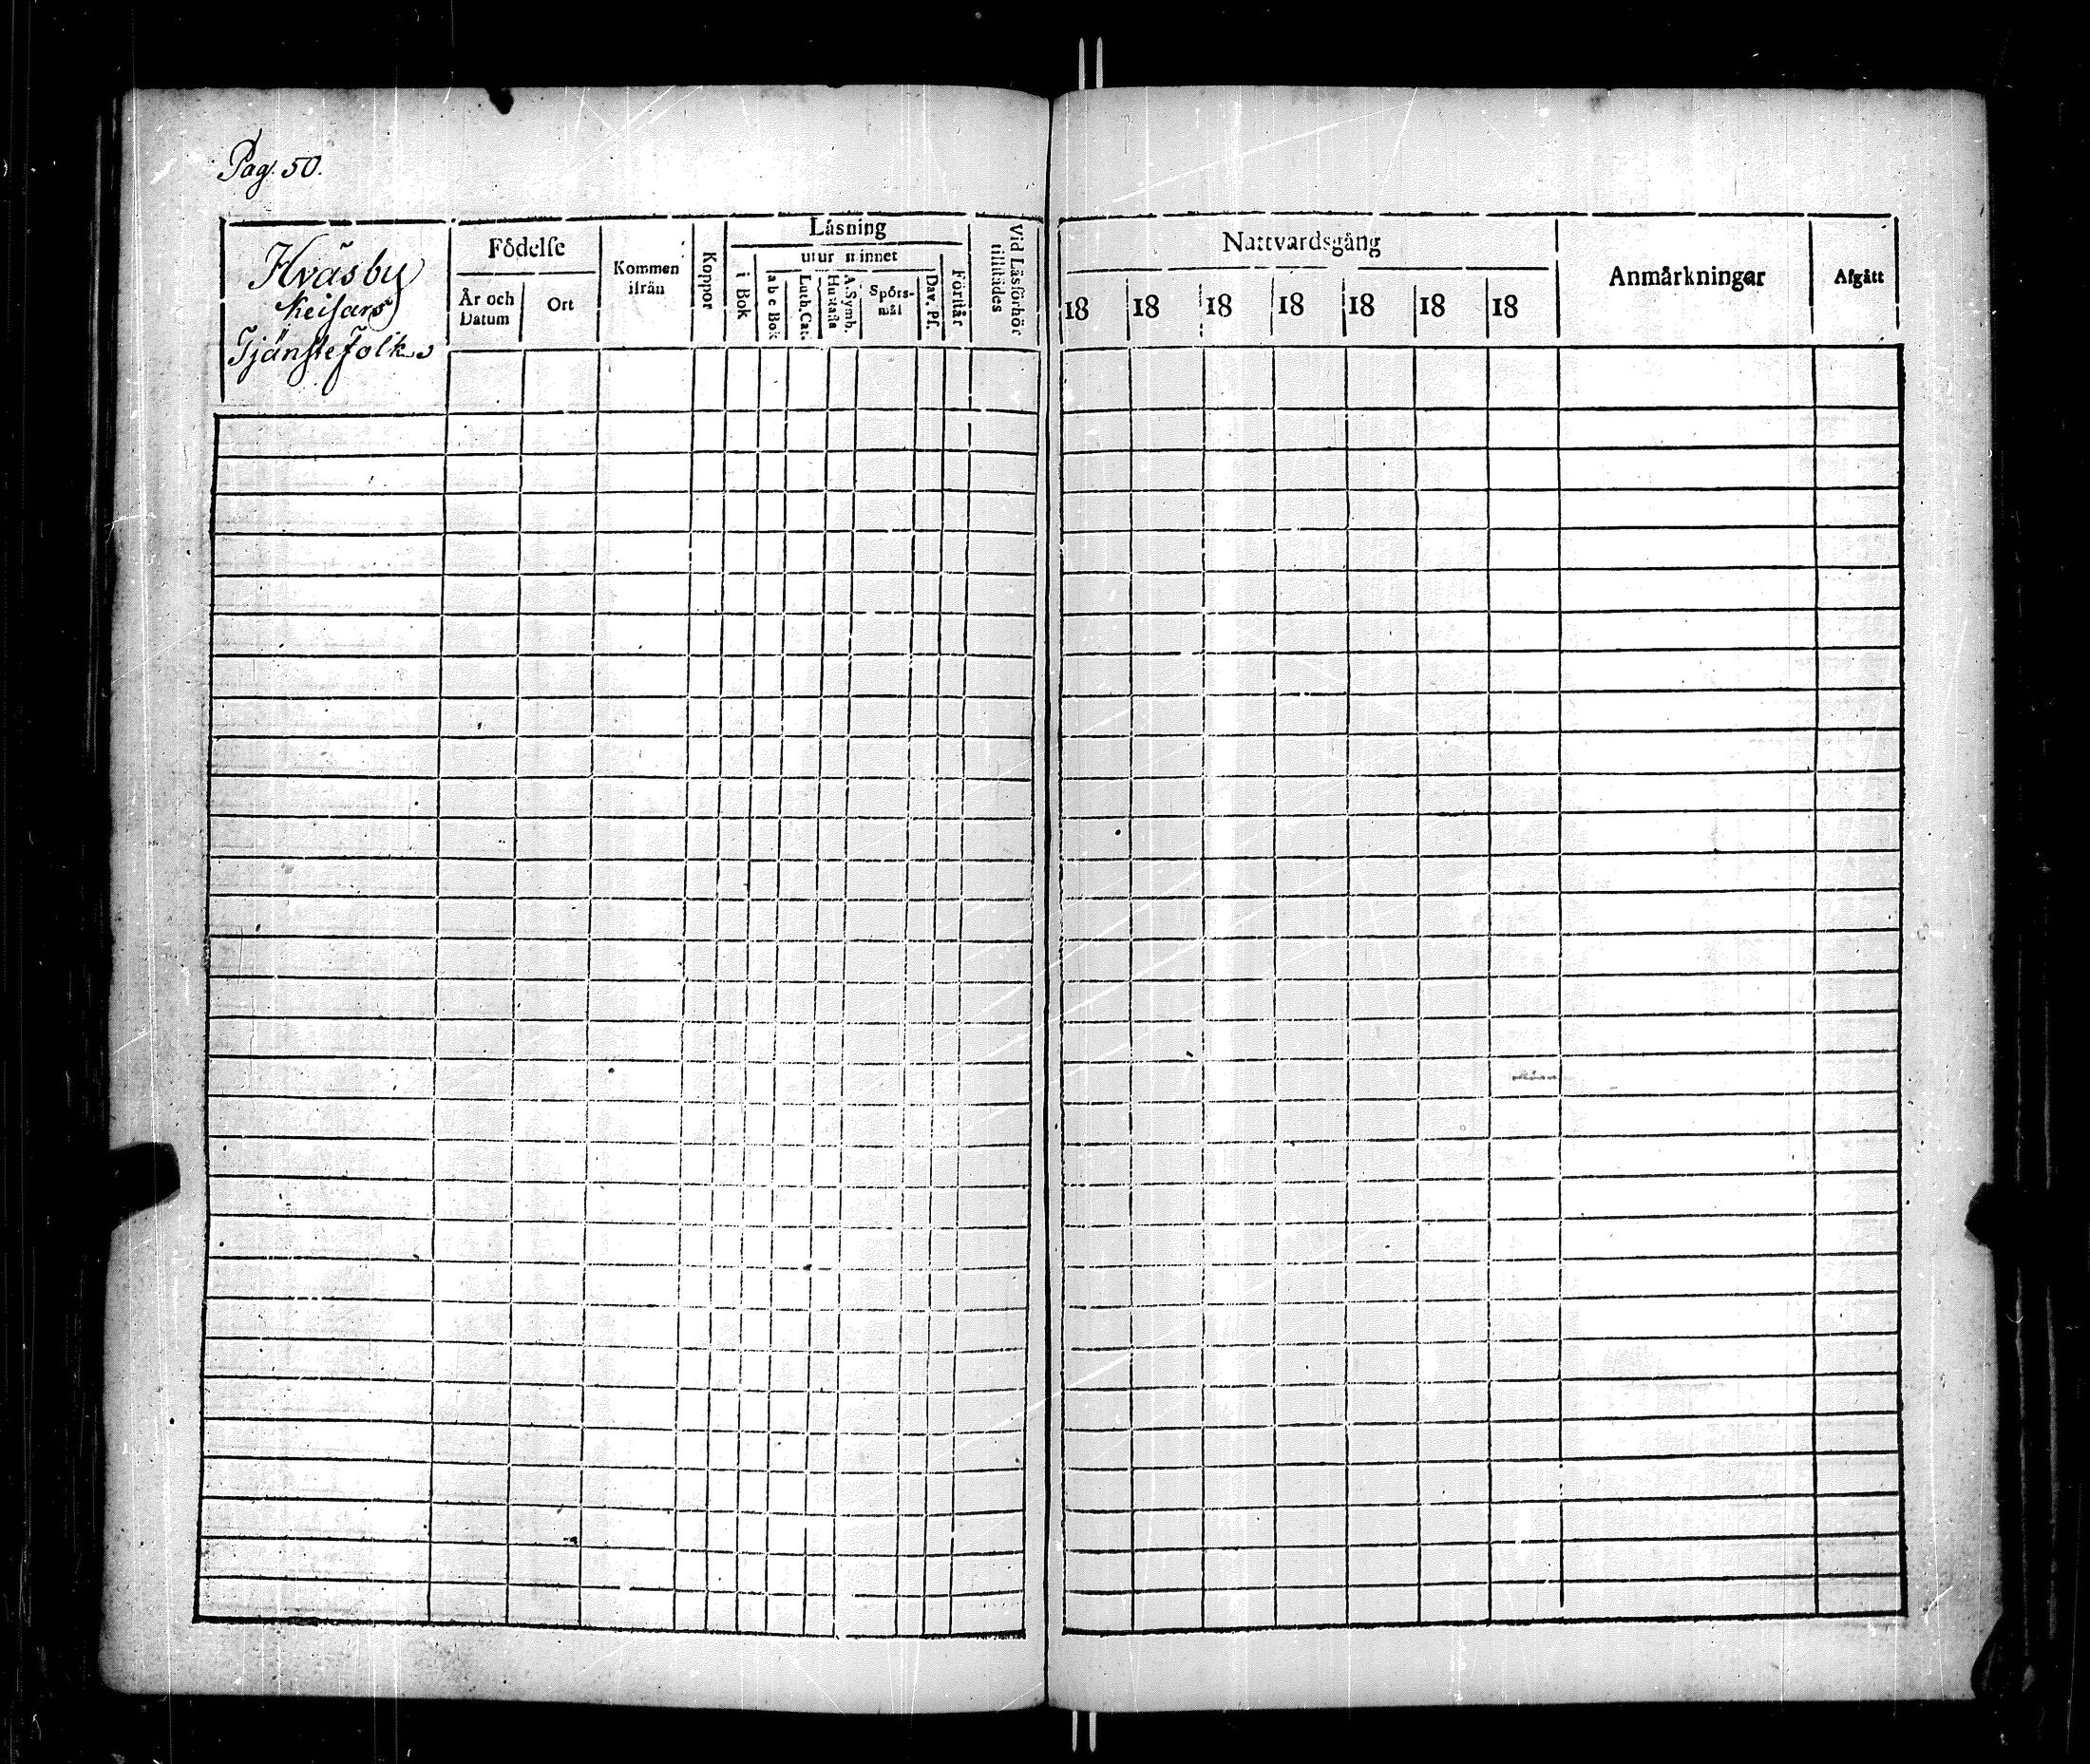 Pag. 50.
Hväsby
Keisars
Tjänstefolk
Födelse
År och Datum
Ort
Kommen ifrån
Koppor
Läsning
i Bok
utur minnet
a b c Bok
Luth. Cat.
Hustafla
A. Symb.
Spörs-
mål
Dav. Ps.
Förstår
Vid Läsförhör
tillstädes
Nattvardsgång
18 18 18 18 18 18 18
Anmärkningar
Afgått